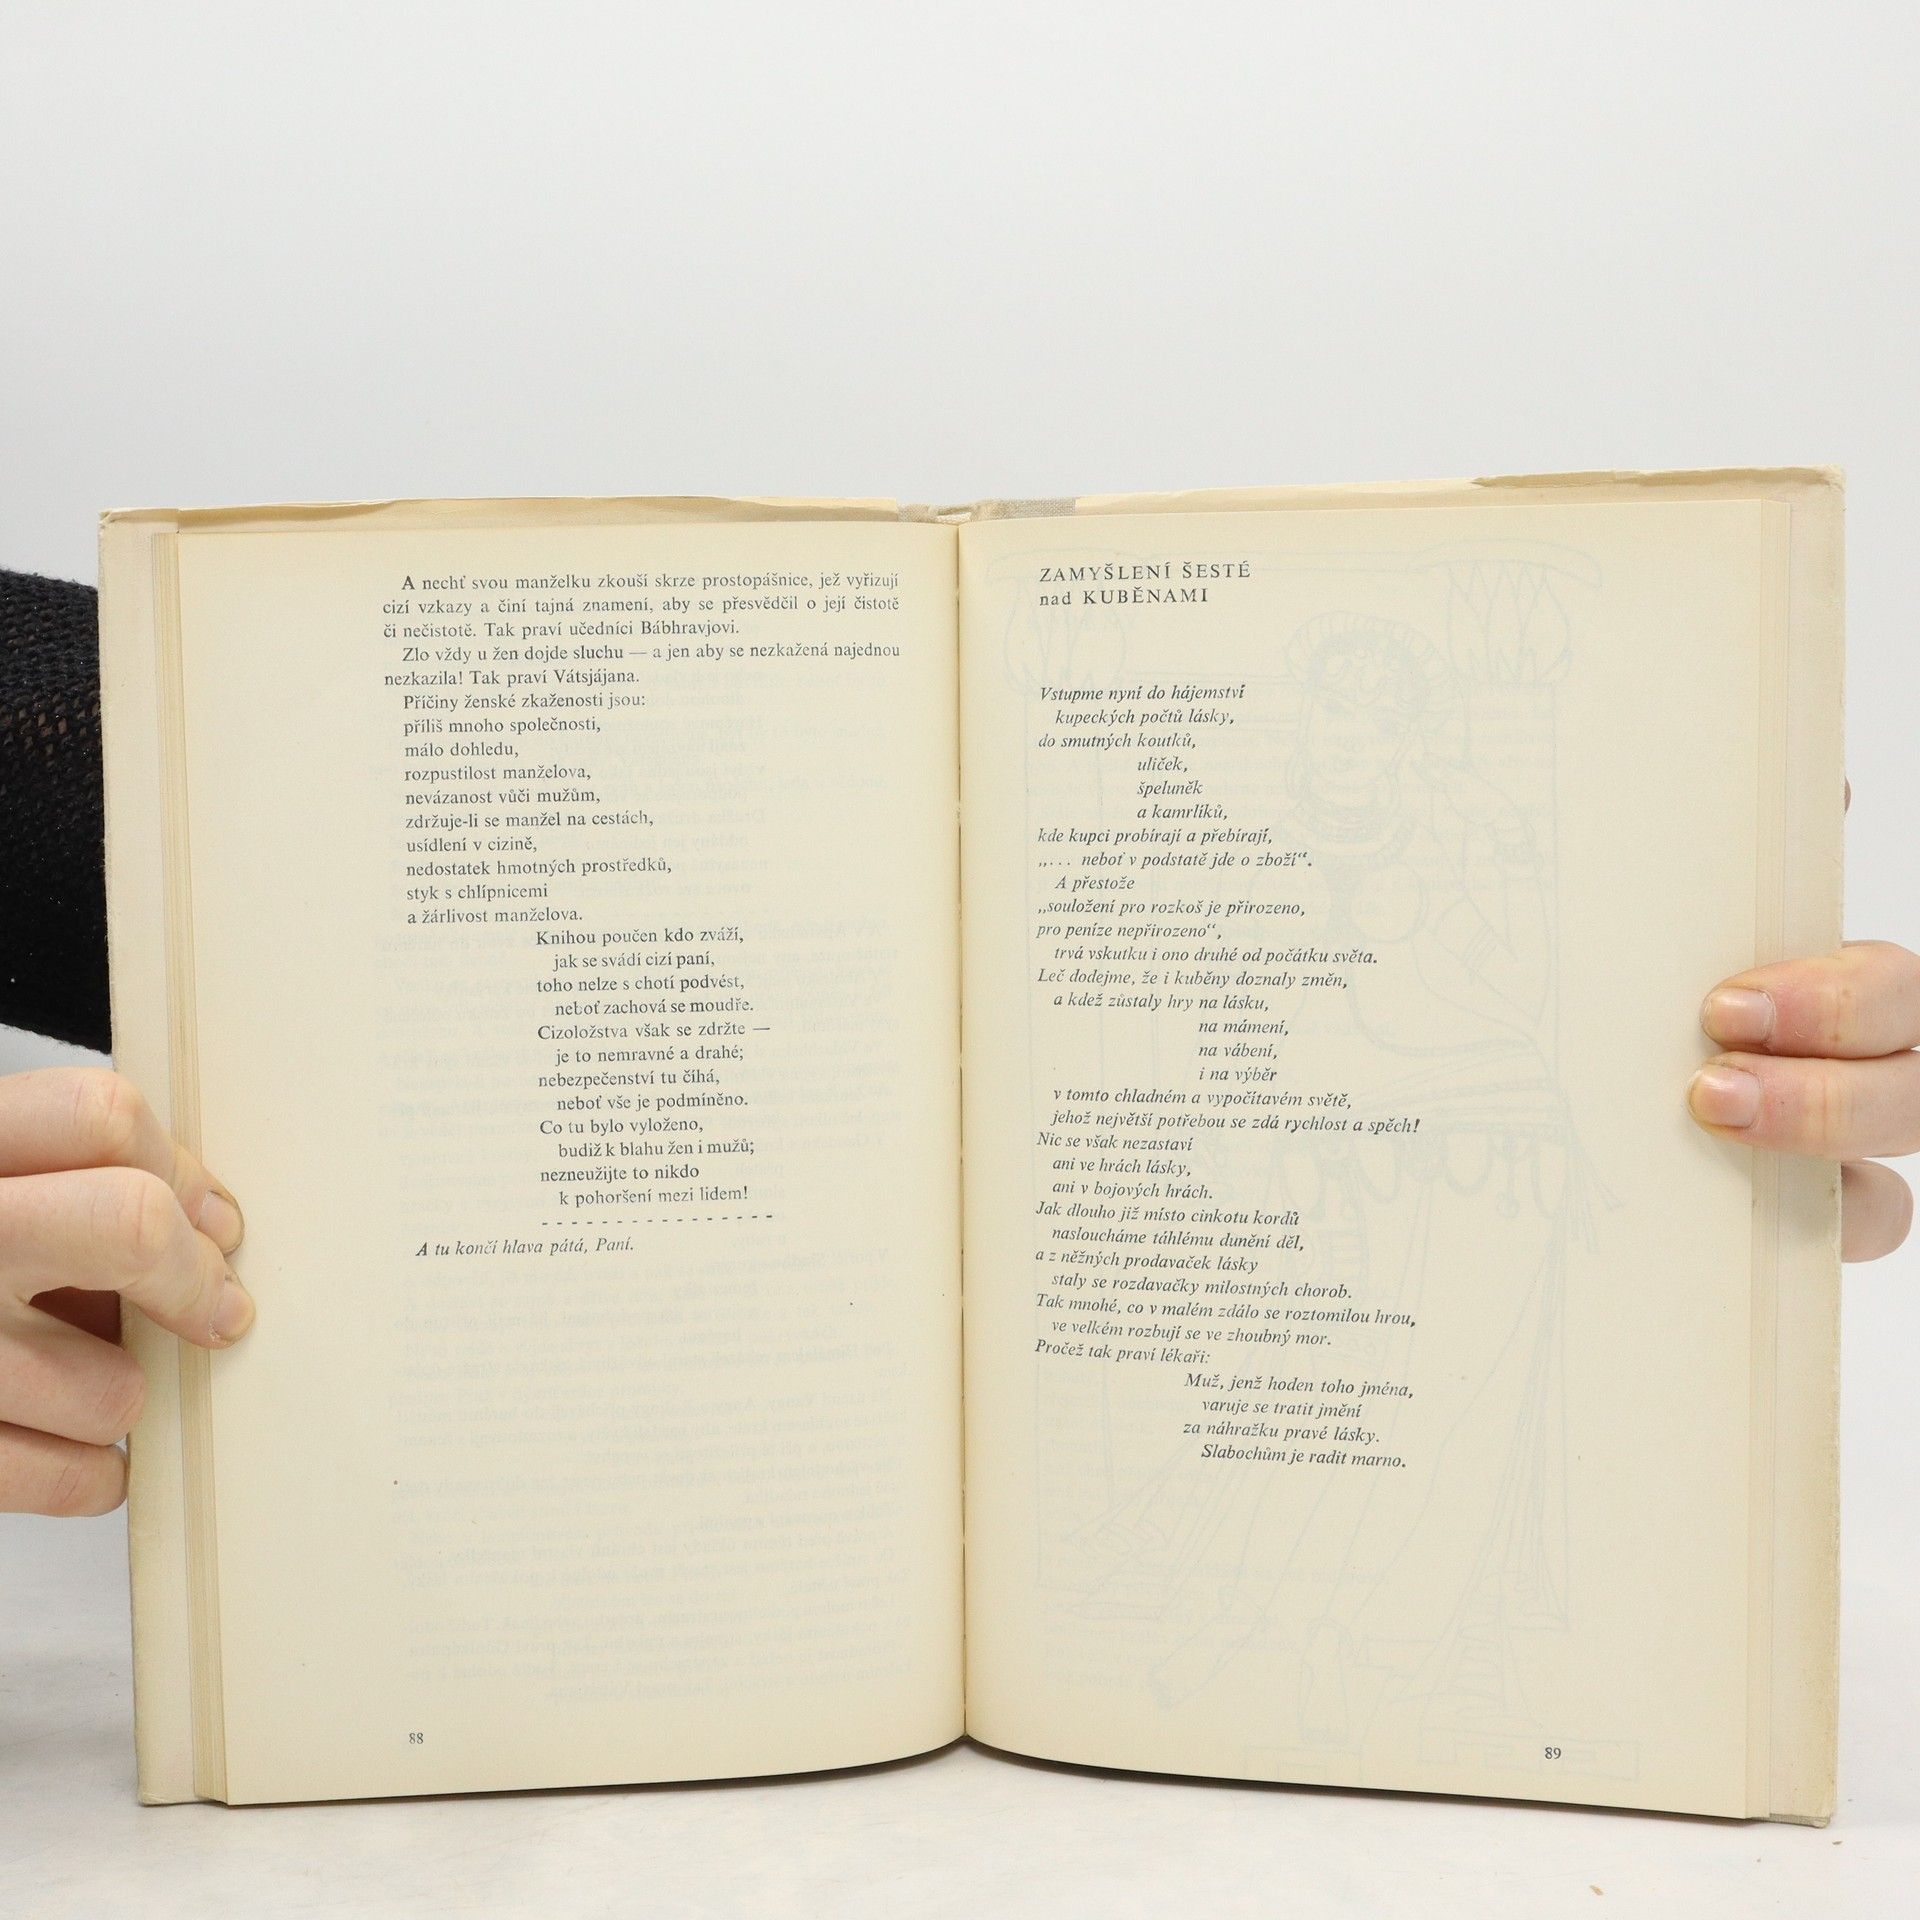 A nechť svou manželku zkouší skrze prostopášnice, jež vyřizují
cizí vzkazy a činí tajná znamení, aby se přesvědčil o její čistotě
či nečistotě. Tak praví učedníci Bábhravjovi.
Zlo vždy u žen dojde sluchu — a jen aby se nezkažená najednou
nezkazila! Tak praví Vátsjájana.
Příčiny ženské zkaženosti jsou:
příliš mnoho společnosti,
málo dohledu,
rozpustilost manželova,
nevázanost vůči mužům,
zdržuje-li se manžel na cestách,
usídlení v cizině,
nedostatek hmotných prostředků,
styk s chlípnicemi
a žárlivost manželova.
Knihou poučen kdo zváží,
jak se svádí cizí paní,
toho nelze s chotí podvést,
neboť zachová se moudře.
Cizoložstva však se zdržte —
je to nemravné a drahé;
nebezpečenství tu číhá,
neboť vše je podmíněno.
Co tu bylo vyloženo,
budiž k blahu žen i mužů;
nezneužijte to nikdo
k pohoršení mezi lidem!
- - - - - - - - - - - - - - - -
A tu končí hlava pátá, Paní.
88
ZAMYŠLENÍ ŠESTÉ
nad KUBĚNAMI
Vstupme nyní do hájemství
kupeckých počtů lásky,
do smutných koutků,
uliček,
špeluněk
a kamrlíků,
kde kupci probírají a přebírají,
„... neboť v podstatě jde o zboží“.
A přestože
„souložení pro rozkoš je přirozeno,
pro peníze nepřirozeno“,
trvá vskutku i ono druhé od počátku světa.
Leč dodejme, že i kuběny doznaly změn,
a kdež zůstaly hry na lásku,
na mámení,
na vábení,
i na výběr
v tomto chladném a vypočítavém světě,
jehož největší potřebou se zdá rychlost a spěch!
Nic se však nezastaví
ani ve hrách lásky,
ani v bojových hrách.
Jak dlouho již místo cinkotu kordů
nasloucháme táhlému dunění děl,
a z něžných prodavaček lásky
staly se rozdavačky milostných chorob.
Tak mnohé, co v malém zdálo se roztomilou hrou,
ve velkém rozbují se ve zhoubný mor.
Pročež tak praví lékaři:
Muž, jenž hoden toho jména,
varuje se tratit jmění
za náhražku pravé lásky.
Slabochům je radit marno.
89